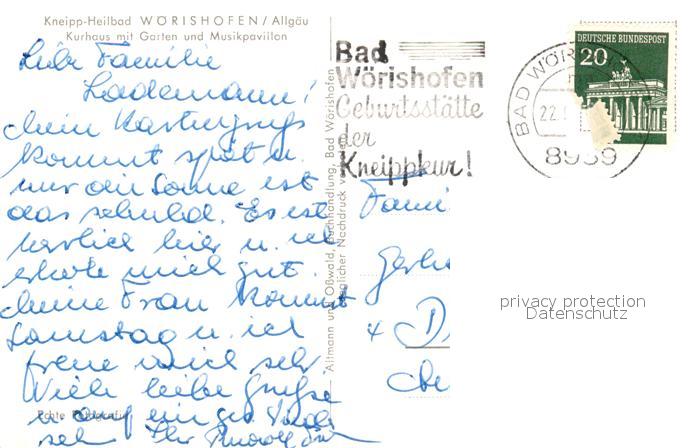 Kneipp-Heilbad WÖRISHOFEN/Allgäu
Kurhaus mit Garten und Musikpavillon
Liebe Familie
Lademann!
Mein Kartengruß
kommt spät u.
nur die Sonne ist
das schuld. Es ist
herrlich hier u. ich
erhole mich gut.
Meine Frau kommt
Samstag u. ich
freue mich sehr
Viele liebe Grüße
u. auf ein
sehn Ihr Rudolf
Echte Fotografie
Altmann und Oßwald, Buchhandlung, Bad Wörishofen
Nachdruck
Bad
Wörishofen
Geburtsstätte
der
Kneippkur!
BAD WÖR
22.
8939
DEUTSCHE BUNDESPOST
20
Fami
privacy protection
Datenschutz